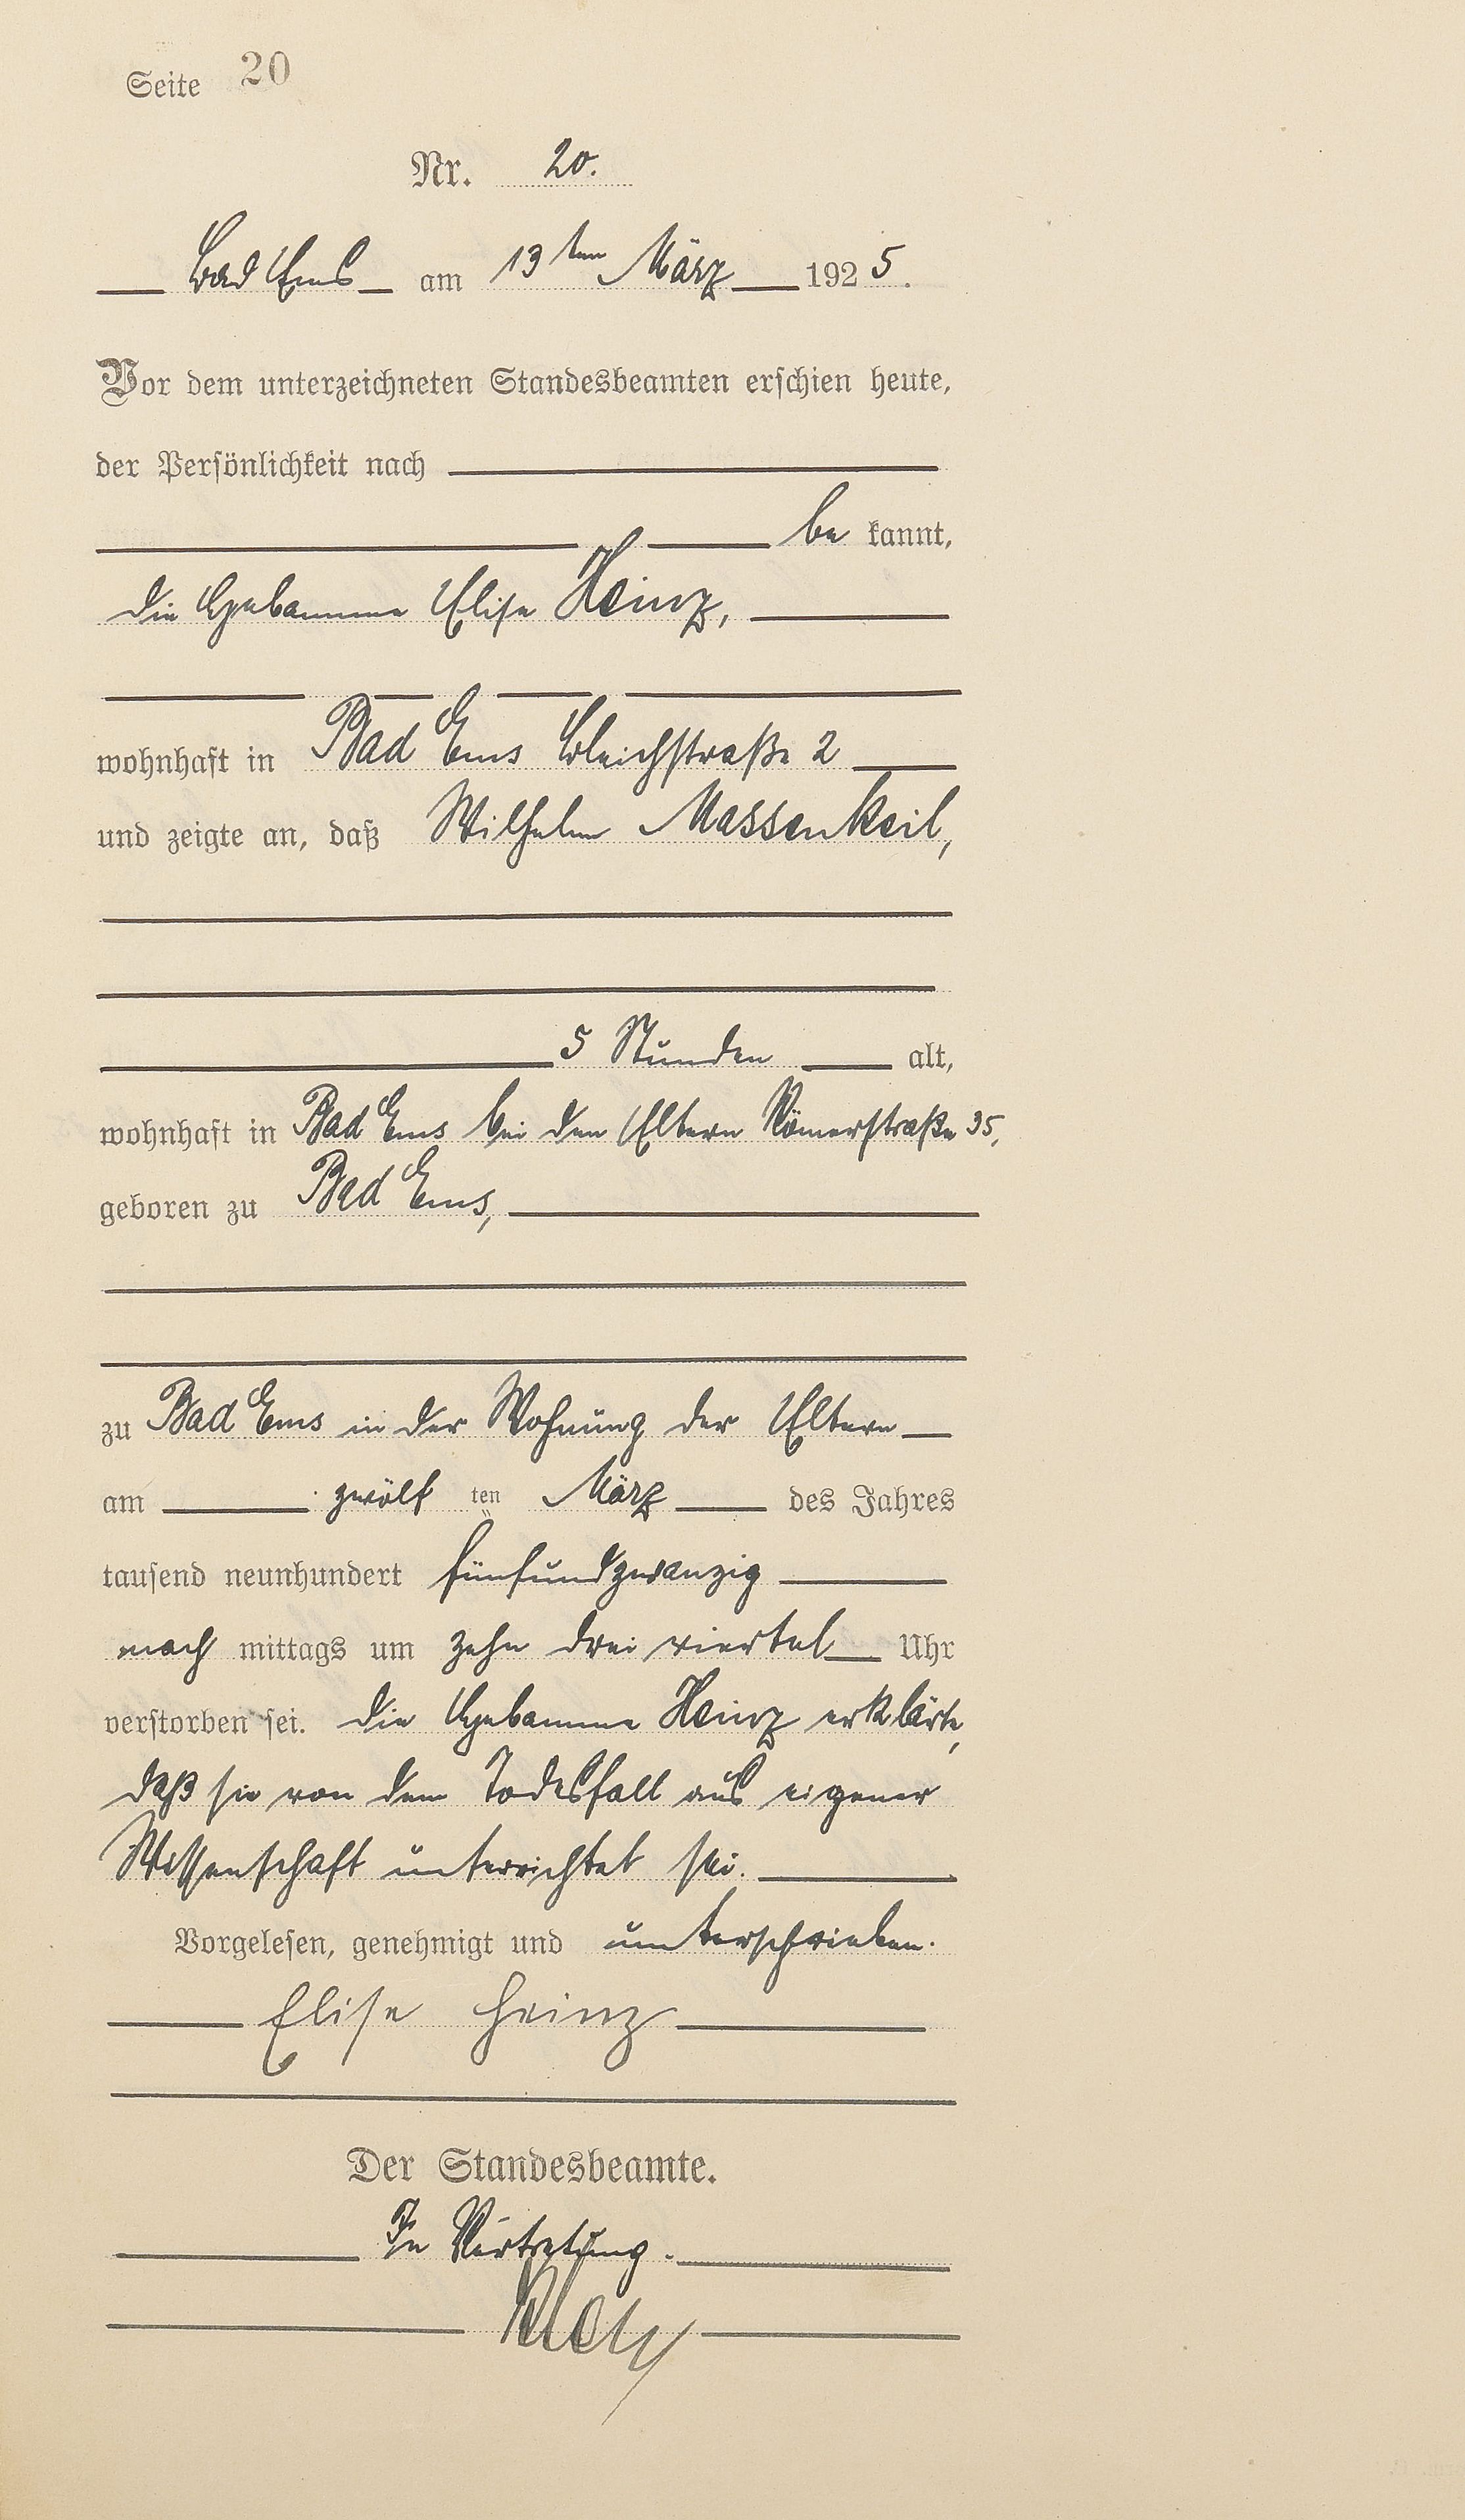 Seite 20
Nr. 20.
Bad Ems am 13ten März 1925.
Vor dem unterzeichneten Standesbeamten erschien heute,
der Persönlichkeit nach
be kannt,
die Hebamme Elise Heinz,
wohnhaft in Bad Ems Bleichstraße 2
und zeigte an, daß Wilhelm Massenkeil,
5 Stunden alt,
wohnhaft in Bad Ems bei den Eltern Römerstraße 35,
geboren zu Bad Ems,
zu Bad Ems in der Wohnung der Eltern
am zwölf ten März des Jahres
tausend neunhundert fünfundzwanzig
nach mittags um zehn drei viertel Uhr
verstorben sei. Die Hebamme Heinz erklärte,
daß sie von dem Todesfall aus eigener
Wissenschaft unterrichtet sei.
Vorgelesen, genehmigt und unterschrieben.
Elise Heinz
Der Standesbeamte.
In Vertretung.